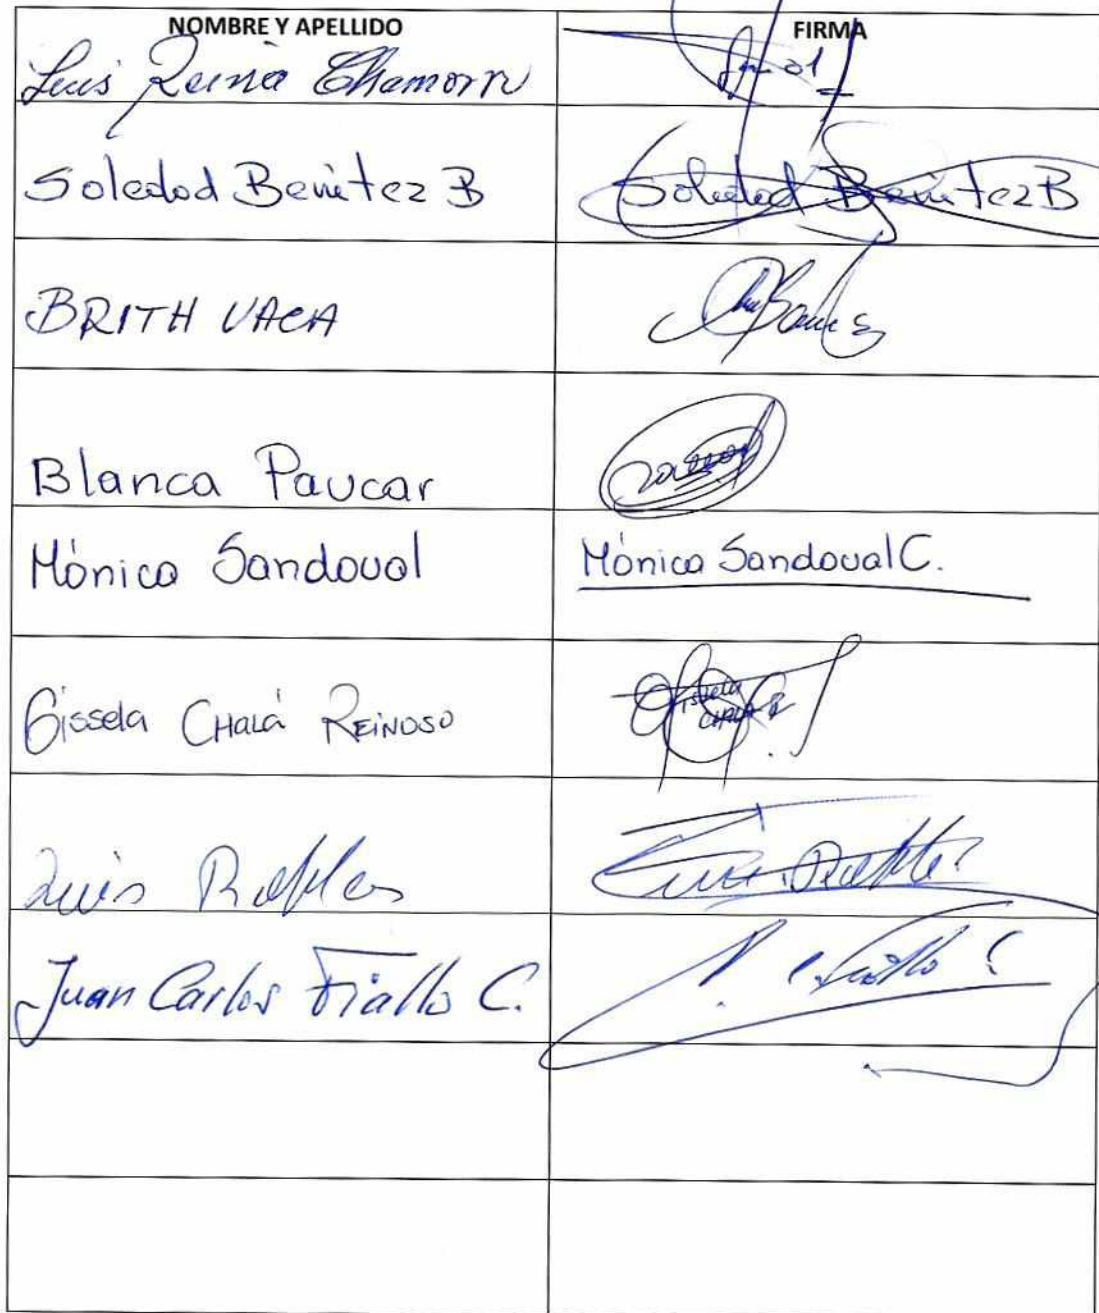 NOMBRE Y APELLIDO FIRMA
Luis Reina Chamorro
Soledad Benitez B Soledad Benitez B
BRITH VACA
Blanca Paucar
Mónica Sandoval Mónica Sandoval C.
Gissela CHALÁ REINOSO Gissela CHALÁ R
Luis Robles Luis Robles
Juan Carlos Fiallo C.